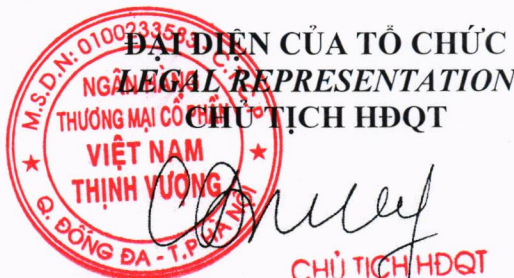 ĐẠI DIỆN CỦA TỔ CHỨC
LEGAL REPRESENTATION
CHỦ TỊCH HĐQT
M.S.D.N: 0100233583 - C.T.C.P
NGÂN HÀNG
THƯƠNG MẠI CỔ PHẦN
VIỆT NAM
THỊNH VƯỢNG
Q. ĐỐNG ĐA - T.P HÀ NỘI
CHỦ TỊCH HĐQT